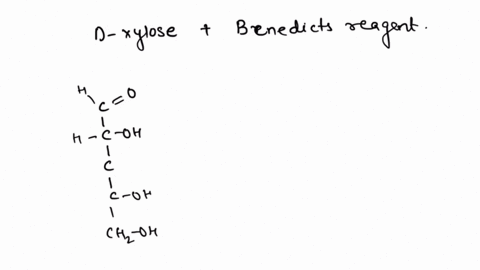 D-xylose + Benedicts reagent.
H
C=O
H-C-OH
C
C-OH
CH₂-OH